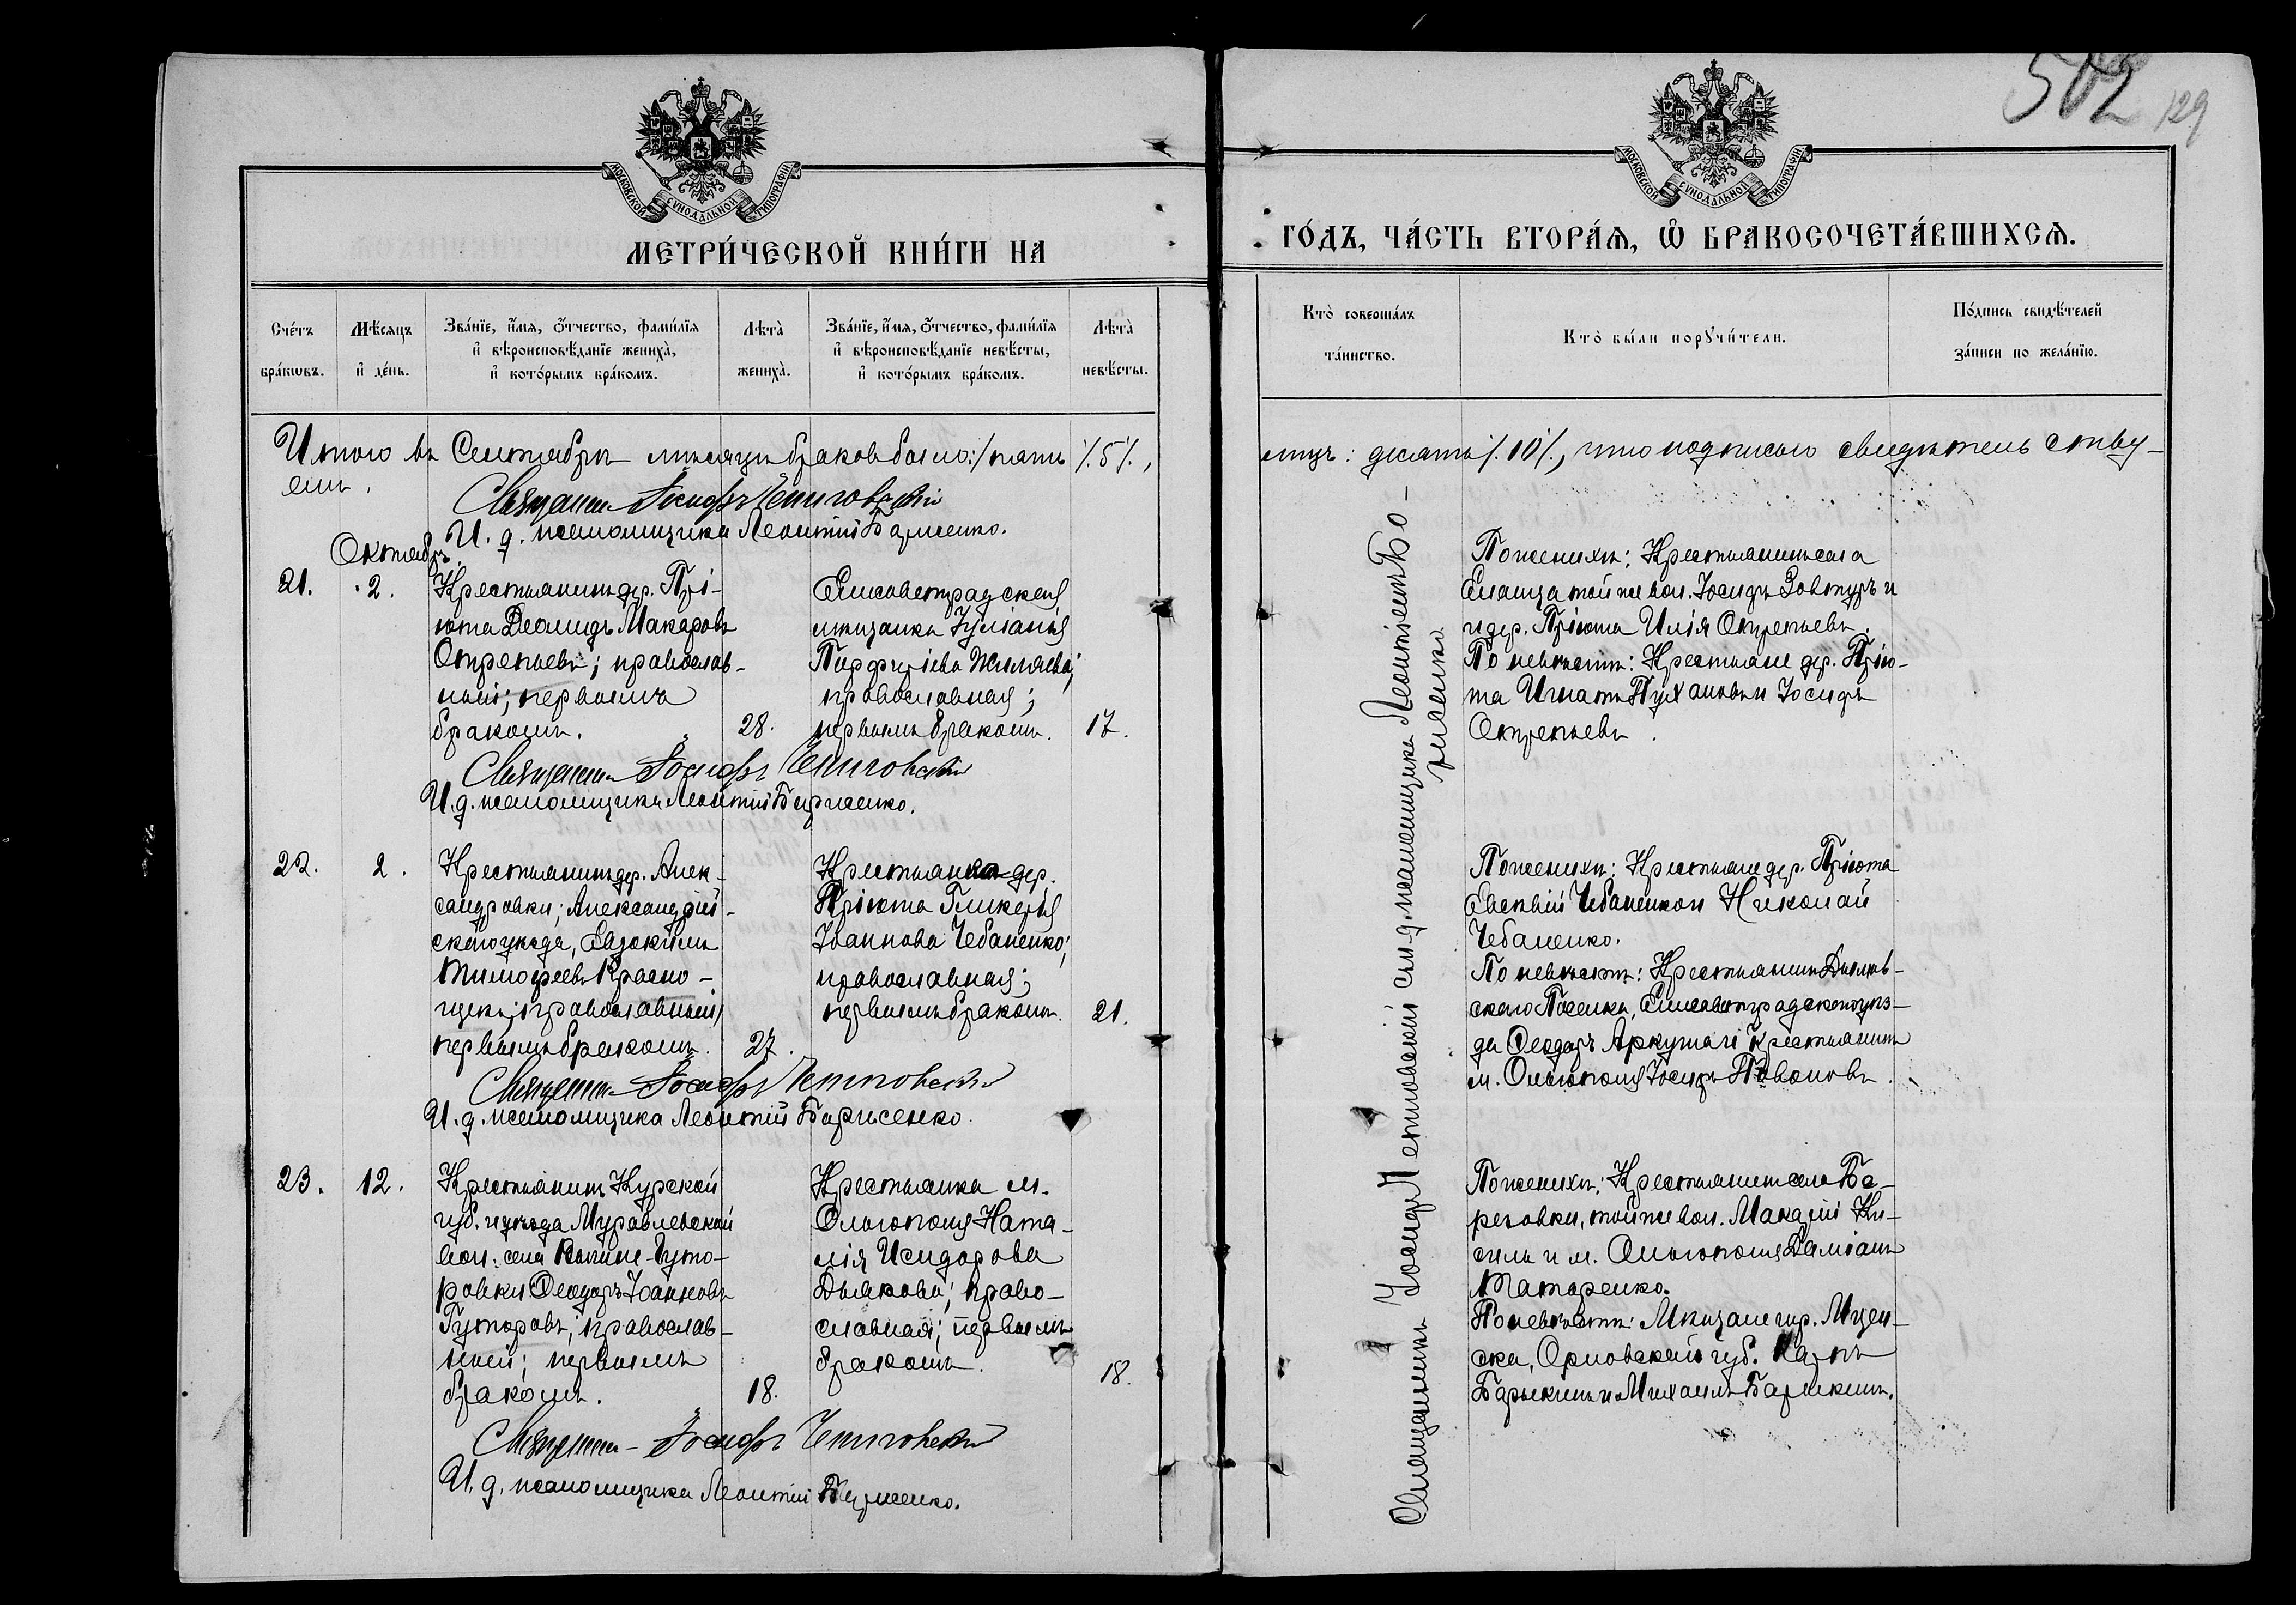 502 129
МОСКОВСКОЙ СѴНОДАЛЬНОЙ ТИПОГРАФІИ
МОСКОВСКОЙ СѴНОДАЛЬНОЙ ТИПОГРАФІИ
МЕТРИ́ЧЕСКОЙ КНИ́ГИ НА
ГО́ДЪ, ЧА́СТЬ ВТОРА́Ѧ, Ѡ҆ БРАКОСОЧЕТА́ВШИХСѦ.
Сче́тъ бра́кѡвъ.
Мѣ́сяцъ и҆ де́нь.
Зва́нїе, и҆́мѧ, ѻ҆́тчество, фами́лїѧ
и҆ вѣроисповѣ́данїе жениха̀,
и҆ кото́рымъ бра́комъ.
Лѣта̀ жениха̀.
Зва́нїе, и҆́мѧ, ѻ҆́тчество, фами́лїѧ
и҆ вѣроисповѣ́данїе невѣ́сты,
и҆ кото́рымъ бра́комъ.
Лѣта̀ невѣ́сты.
Кто̀ соверша́лъ
та́инство.
Кто̀ бы́ли порꙋчи́тели.
По́дпись свидѣ́телей
за́писи по жела́нїю.
Итого въ Сентябрѣ мѣсяцѣ браковъ было: /пять /.5/.,
лицъ: десять /.10/., что подписью свидѣтельству-
емъ.
Священникъ Іосифъ
И. д. псаломщика Леонтій Борисенко.
Октябрь.
21. 2.
Крестьянинъ дер. Прі-
юта Леонидъ Макаровъ
Отрепьевъ; православ-
ный; первымъ
бракомъ.
28.
Елисаветградская
мѣщанка Іуліанія
Порфиріева Жиляева;
православная;
первымъ бракомъ.
17.
По женихѣ: Крестьянинъ села
Еланца той же вол. Іосифъ Зовтуръ и
и дер. Пріюта Илія Отрепьевъ.
По невѣстѣ: Крестьяне дер. Прію-
та Игнатъ Пухановъ и Іосифъ
Отрепьевъ.
Священникъ Іосифъ
И. д. псаломщика Леонтій Борисенко.
22. 2.
Крестьянинъ дер. Алек-
сандровки, Александрій-
скаго уѣзда, Евдокимъ
Тимофеевъ Красно-
щекъ; православный;
первымъ бракомъ.
27.
Крестьянка дер.
Пріюта Гликерія
Іоаннова Чебаненко;
православная;
первымъ бракомъ.
21.
По женихѣ: Крестьяне дер. Пріюта
Евсевій Чебаненко и Николай
Чебаненко.
По невѣстѣ: Крестьянинъ
скаго Поселка, Елисаветградскаго уѣз-
да Ѳеодоръ и Крестьянинъ
м. Ольгополя Іосифъ
Священникъ Іосифъ
И. д. псаломщика Леонтій Борисенко.
23. 12.
Крестьянинъ Курской
губ. и уѣзда Муравлевской
вол. села Гуто-
ровки Ѳеодоръ Іоанновъ
Гуторовъ; православ-
ный; первымъ
бракомъ.
18.
Крестьянка м.
Ольгополя Ната-
лія Исидорова
Дьякова; право-
славная; первымъ
бракомъ.
18.
По женихѣ: Крестьянинъ села Бе-
резовки, той же вол. Макарій Ки-
силь и м. Ольгополя Даміанъ
Татаренко.
По невѣстѣ: Мѣщане гор. Мцен-
ска, Орловской губ. Карпъ
Барыкинъ и Михаилъ Барыкинъ.
Священникъ Іосифъ
И. д. псаломщика Леонтій Борисенко.
Священникъ Іосифъ и. д. псаломщика Леонтій Бо-
рисенко